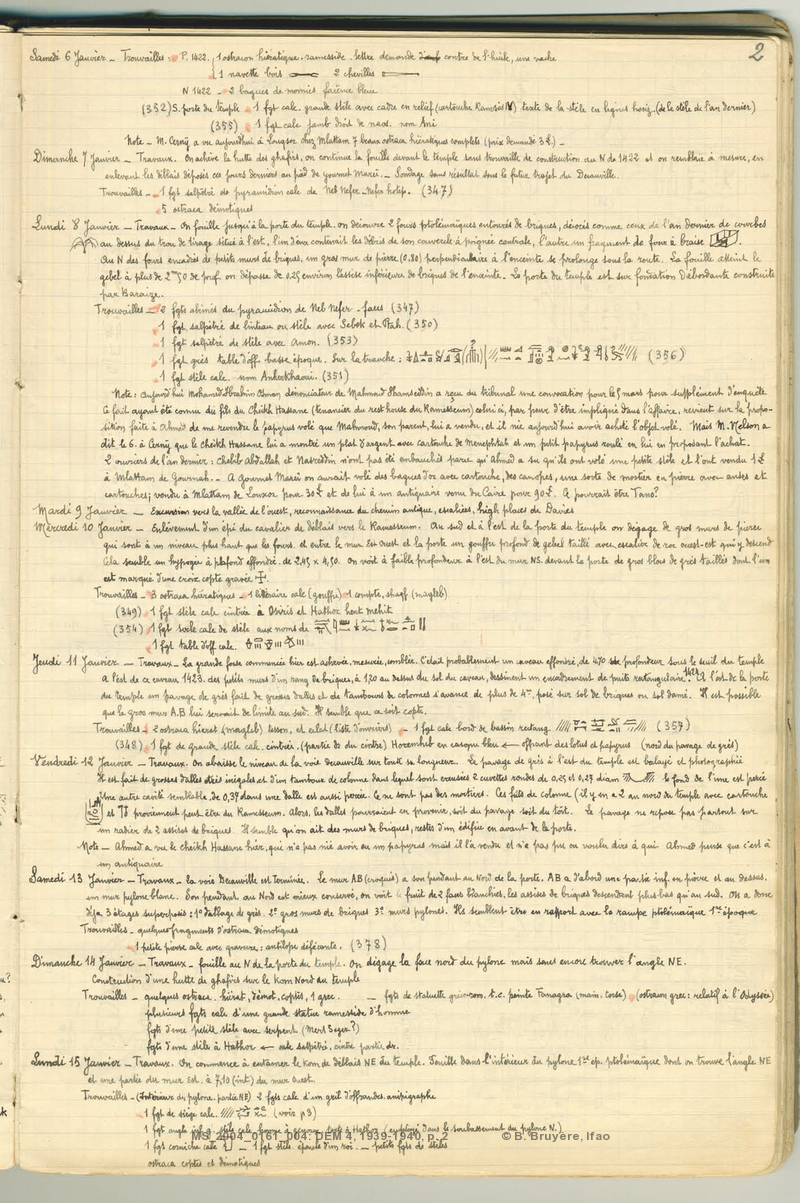 2
Samedi 6 Janvier _ Trouvailles : P. 1422. 1 ostracon hiératique. ramesside. lettre demande contre de l'huile, une vache
1 navette bois 2 chevilles
N 1422 _ 2 bagues de momies faïence bleue
(352) S. porte du temple 1 fgt calc. grande stèle avec cadre en relief (cartouche Ramosès IV) texte de la stèle en lignes horiz. (de la stèle de l'an dernier)
(355) 1 fgt calc jamb droit de naos. nom Ani
Note _ M. Cerný a vu aujourd'hui à Louqsor chez Mlattam 7 beaux ostraca hiératiques complets (prix demandé 3 £) _
Dimanche 7 Janvier _ Travaux. On achève la hutte des ghafirs, on continue la fouille devant le temple sans trouvaille de construction du N de 1422 et on remblaie à mesure, en
enlevant les déblais déposés ces jours derniers au pied de gournet Mareï. _ Sondage sans résultat sous le futur trajet du Decauville.
Trouvailles _ 1 fgt salpêtré de pyramidion calc de Neb Nefer _ Nefer hotep. (347)
5 ostraca démotiques
Lundi 8 Janvier _ Travaux _ On fouille jusqu'à la porte du temple. on découvre 2 fours ptolémaïques entourés de briques, dévoiés comme ceux de l'an dernier de courbes
au dessus du trou de tirage situé à l'est, l'un d'eux contenait les débris de son couvercle à poignée centrale, l'autre un fragment de four à braise
Au N des fours encadrés de petits murs de briques, un gros mur de pierre (0,80) perpendiculaire à l'enceinte se prolonge sous la route. La fouille atteint le
gebel à plus de 2m50 de prof. on dépasse de 0,25 environ l'assise inférieure de briques de l'enceinte. _ La porte du temple est sur fondation débordante construite
par Baraize.
Trouvailles _ 2 fgts abimés du pyramidion de Neb Nefer _ faces (347)
1 fgt salpêtré de linteau ou stèle avec Sebek et Ptah. (350)
1 fgt salpêtré de stèle avec Amon. (353)
1 fgt grès table d'off. basse époque. Sur la tranche : (356)
1 fgt stèle calc. nom Anherkhaoui. (351)
Note : aujourd'hui Mohamed Ibrahim dénonciateur de Mahmoud Shamseddin a reçu du tribunal une convocation pour le 5 mars pour supplément d'enquête
Ce fait ayant été connu du fils du Cheikh Hassane (tenancier du rest house du Ramesseum) celui ci, par peur d'être impliqué dans l'affaire, revient sur la propo-
sition faite à Ahmed de me revendre le papyrus volé que Mahmoud, son parent, lui a vendu, et il nie aujourd'hui avoir acheté l'objet volé. Mais M. Nelson a
dit le 6. à Cerný que le Cheikh Hassane lui a montré un plat d'argent avec cartouche de Menephtah et un petit papyrus roulé en lui en proposant l'achat.
2 ouvriers de l'an dernier : Chahib Abdallah et Nasreddin n'ont pas été embauchés parce qu'Ahmed a su qu'ils ont volé une petite stèle et l'ont vendu 1 £
à Mlattam de Gournah. _ A Gournet Mareï on aurait volé des bagues d'or avec cartouche, des canopes, une sorte de mortier en pierre avec anses et
cartouches; vendu à Mlattam de Louxor pour 30 £ et de lui à un antiquaire venu du Caire pour 90 £. A pourrait être Tano?
Mardi 9 Janvier _ Excursion vers la vallée de l'ouest, reconnaissance du chemin antique, escaliers, high places de Davies
Mercredi 10 Janvier _ Enlèvement d'un épi du cavalier de déblais vers le Ramesseum. Au sud et à l'est de la porte du temple on dégage de gros murs de pierre
qui sont à un niveau plus haut que les fours. et entre le mur Est ouest et la porte un gouffre profond de gebel taillé avec escalier de roc ouest-est qui y descend
Cela semble un hypogée à plafond effondré. de 2,45 x 4,50. On voit à faible profondeur à l'est du mur NS. devant la porte de gros blocs de grès taillés dont l'un
est marqué d'une croix copte gravée
Trouvailles _ 3 ostraca hiératiques _ 1 littéraire calc (gouffre) 1 compte, shaqf (magleb)
(349) 1 fgt stèle calc cintrée à Osiris et Hathor hent mehit
(354) 1 fgt socle calc de stèle aux noms de
1 fgt table d'off calc.
Jeudi 11 Janvier _ Travaux _ La grande fosse commencée hier est achevée, mesurée, comblée. C'était probablement un caveau effondré, de 4,70 de profondeur sous le seuil du temple
a l'est de ce caveau 1423. des petits murs d'un rang de briques, à 1,20 au dessus du sol du caveau, dessinent un encadrement de puits rectangulaire. A l'est de la porte
du temple un pavage de grès fait de grosses dalles et de tambours de colonnes s'avance de plus de 4m, posé sur sol de briques ou sol damé. Il est possible
que le gros mur A.B lui servait de limite au sud. Il semble que ce soit copte.
Trouvailles _ 2 ostraca hiérat (magleb) tesson, et calc (liste d'ouvriers) _ 1 fgt calc bord de bassin rectang. (357)
(348) 1 fgt de grande stèle calc. cintrée. (partie dr. du cintre) Horemheb en casque bleu offrant des lotus et papyrus (nord du pavage de grès)
Vendredi 12 Janvier _ Travaux. On abaisse le niveau de la voie decauville sur toute sa longueur. Le pavage de grès à l'est du temple est balayé et photographié
Il est fait de grosses dalles inégales et d'un tambour de colonne dans lequel sont creusées 2 cuvettes rondes de 0,25 et 0,27 diam le fond de l'une est percé
Une autre cavité semblable, de 0,37 dans une dalle est aussi percée. Ce ne sont pas des mortiers. Ces fûts de colonne (il y en a 2 au nord du temple avec cartouche
et proviennent peut être du Ramesseum. Alors, les dalles pourraient en provenir, soit du pavage soit du toit. Le pavage ne repose pas partout sur
un radier de 2 assises de briques. Il semble qu'on ait des murs de briques, restes d'un édifice en avant de la porte.
Note _ Ahmed a vu le cheikh Hassane hier, qui n'a pas nié avoir eu un papyrus mais il l'a vendu et n'a pas pu ou voulu dire à qui. Ahmed pense que c'est à
un antiquaire
Samedi 13 Janvier _ Travaux _ La voie Decauville est terminée. Le mur AB (croquis) a son pendant au Nord de la porte. AB a d'abord une partie inf. en pierre et au dessus.
un mur pylone blanc. Son pendant au Nord est mieux conservé, on voit le fruit de 2 faces blanchies, les assises de briques descendent plus bas qu'au sud. On a donc
déjà 3 étages superposés : 1° dallage de grès. 2° gros murs de briques 3° murs pylones. Ils semblent être en rapport avec la rampe ptolémaïque 1re époque
Trouvailles _ quelques fragments d'ostraca démotiques
1 petite pierre calc avec gravure : antilope déférente. (378)
Dimanche 14 Janvier _ Travaux _ fouille au N de la porte du temple. On dégage la face nord du pylone mais sans encore trouver l'angle NE.
Construction d'une hutte de ghafirs sur le kom Nord du temple
Trouvailles _ quelques ostraca. hiérat, démot. coptes, 1 grec. _ fgts de statuette gréco-rom. t.c. peinte Tanagra (main. torse) (ostracon grec : relatif à l'Odyssée)
plusieurs fgts calc d'une grande statue ramesside d'homme
fgts d'une petite stèle avec serpent (Mert Seger?)
fgts d'une stèle à Hathor calc salpêtré, cintre partie dr.
Lundi 15 Janvier _ Travaux. On commence à entamer le kom de déblais NE du temple. Fouille dans l'intérieur du pylone 1re ép. ptolémaïque dont on trouve l'angle NE
et une partie du mur Est. à 7,10 (int) du mur ouest.
Trouvailles _ (Intérieur du pylone. partie NE) 2 fgts calc d'un gril d'offrandes. anépigraphe
1 fgt de siège calc. (voir p3)
1 fgt angle inf. g. stèle calc. femme à genoux. texte à Hathor (employé dans le soubassement du pylone N.)
1 fgt corniche calc _ 1 fgt stèle. épaule d'un roi. _ petits fgts de stèles
ostraca coptes et démotiques
MS_2004_0161_004. DEM 4, 1939-1940, p. 2 © B. Bruyère, Ifao